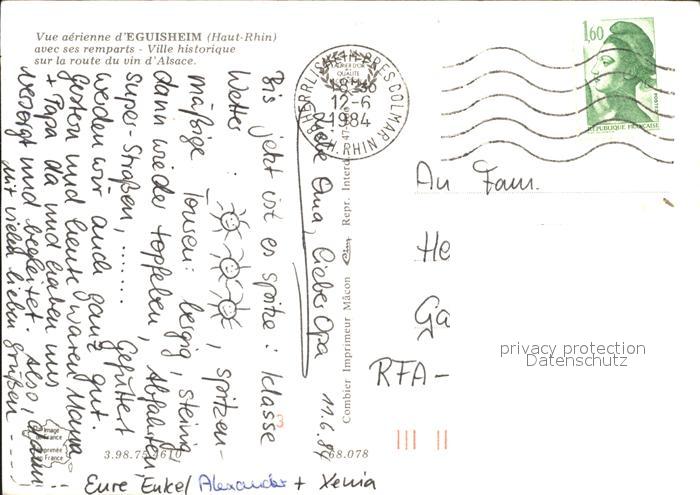 Vue aérienne d'EGUISHEIM (Haut-Rhin)
avec ses remparts - Ville historique
sur la route du vin d'Alsace.
1,60
RÉPUBLIQUE FRANÇAISE
HERRLISHEIM-PRES-COLMAR
18H30
12-6
1984
HT RHIN
11.6.84
Liebe Oma, lieber Opa
Bis jetzt ist es spitze: klasse
Wetter : , spitzen-
mäßige Touren: bergig, steinig,
dann wieder topfeben, Abfahrten,
Super-Straßen, ...... Gefüttert
werden wir auch ganz gut.
Gestern und heute waren Mama
+ Papa da und haben uns
versorgt und begleitet. Also, dann
mit vielen lieben Grüßen ---
Eure Enkel Alexander + Xenia
An Fam.
He
Ga
RFA-
privacy protection
Datenschutz
Combier Imprimeur Mâcon Cim Repr. Interd.
Image de France
Imprimée en France
3.98.75.4610
68.078
3